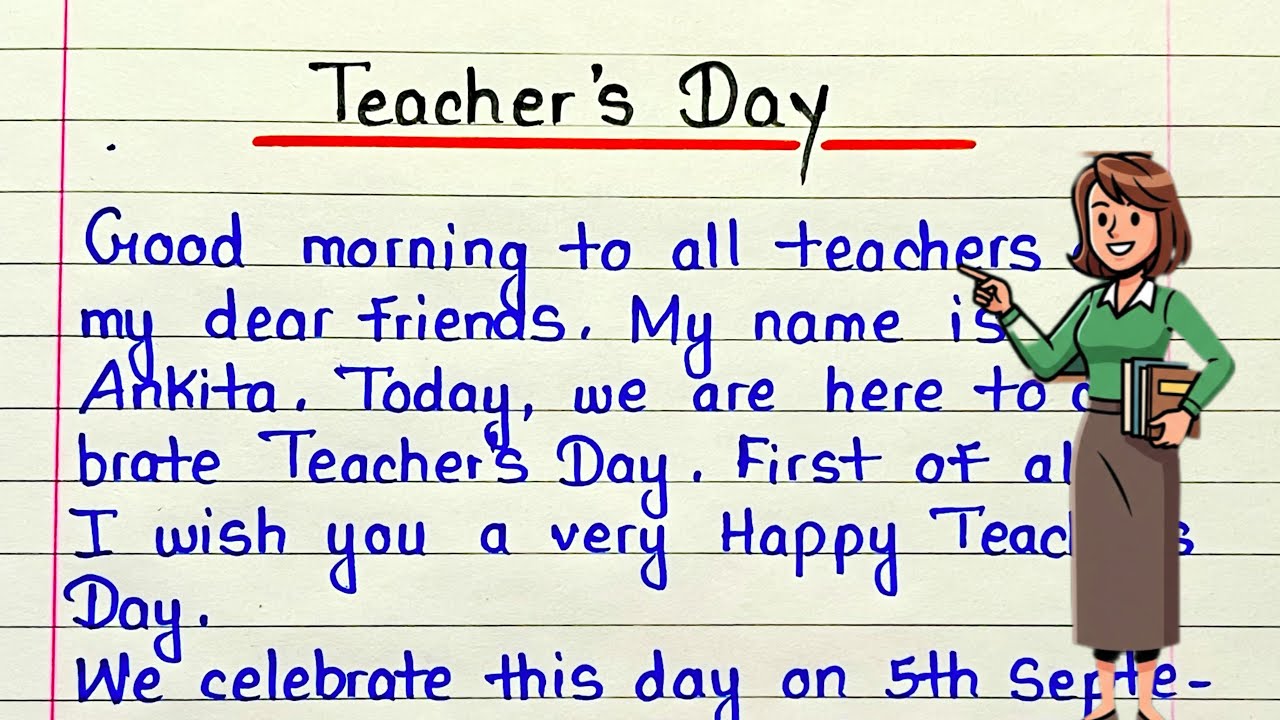 Teacher's Day
Good morning to all teachers
my dear friends. My name is
Ankita. Today, we are here to
brate Teacher's Day. First of
I wish you a very Happy
Day.
We celebrate this day on 5th Septe-